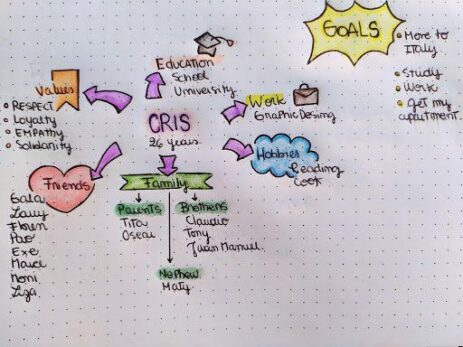 GOALS
• Move to
Italy
• Study
• Work
• get my
apartment.
Education
School
University
Values
• RESPECT
• Loyalty
• EMPathy
• Solidarity
CRIS
26 years
Work
Graphic Desing
Hobbies
Reading
Cook
Friends
Gala
Lauy
Flor
Exe
Noni
Liza
Family
Parents
Tita
Brothers
Claudio
Tony
Juan Manuel
Nephew
Maty